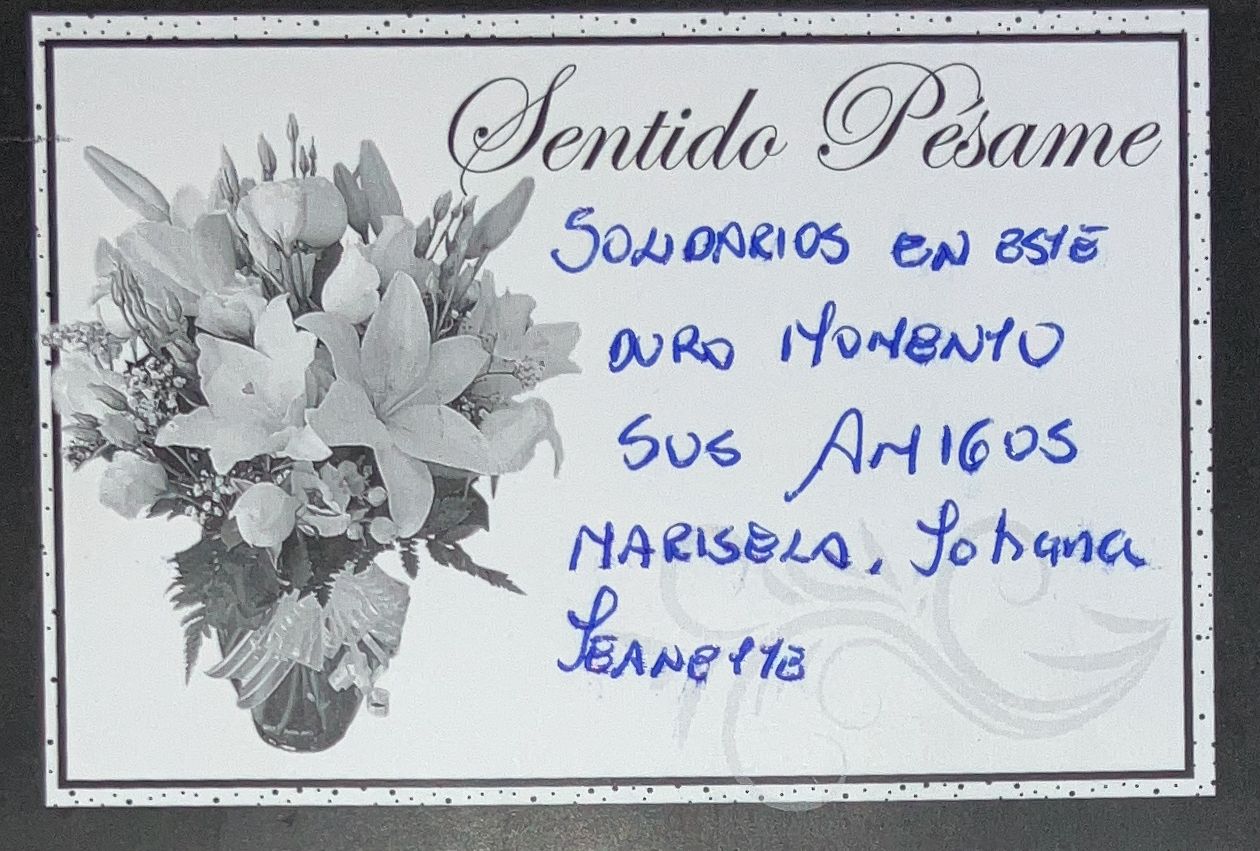 Sentido Pésame
SOLIDARIOS EN ESTE
DURO MOMENTO
SUS AMIGOS
MARISELA, Johana
JEANETTE